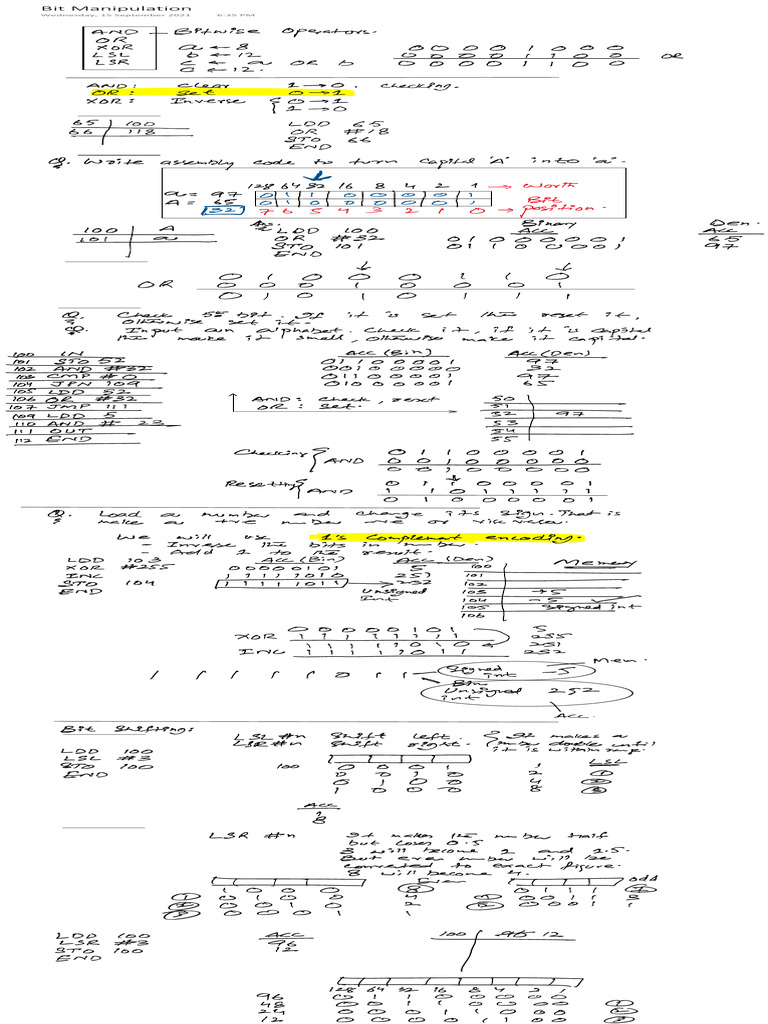 Bit Manipulation
Wednesday, 15 September 2021 6:35 PM
AND - Bitwise Operators.
OR
XOR a ← 8 0 0 0 0 1 0 0 0
LSL b ← 12 0 0 0 0 1 1 0 0 OR
LSR c ← a OR b 0 0 0 0 1 1 0 0
c ← 12.
AND: Clear 1 → 0. Checking.
OR: Set 0 → 1
XOR: Inverse { 0 → 1
1 → 0
65 100 LDD 65
66 118 OR #18
STO 66
END
Q. Write assembly code to turn Capital 'A' into 'a'.
128 64 32 16 8 4 2 1 → Worth
a = 97 0 1 1 0 0 0 0 1 Bit
A = 65 0 1 0 0 0 0 0 1 position.
32 7 6 5 4 3 2 1 0
Ans: Binary Den.
100 A LDD 100 Acc Acc
101 a OR #32 0 1 0 0 0 0 0 1 65
STO 101 0 1 1 0 0 0 0 1 97
END
0 1 0 0 0 1 1 0
OR 0 0 0 1 0 0 0 1
0 1 0 1 0 1 1 1
Q. Check 5th bit. If it is set then reset it,
otherwise set it.
Q. Input an alphabet. Check it, if it is capital
then make it small, otherwise make it capital.
100 IN Acc (Bin) Acc (Den)
101 STO 52 0 1 1 0 0 0 0 1 97
102 AND #32 0 0 1 0 0 0 0 0 32
103 CMP #0 0 1 1 0 0 0 0 1 97
104 JPN 109 0 1 0 0 0 0 0 1 65
105 LDD 52
106 OR #32 AND: Check, reset 50
107 JMP 111 OR: Set. 51
109 LDD 5 52 97
110 AND # 23 53
111 OUT 54
112 END 55
Checking { 0 1 1 0 0 0 0 1
AND 0 0 1 0 0 0 0 0
0 0 1 0 0 0 0 0
Resetting { 0 1 1 0 0 0 0 1
AND 1 1 0 1 1 1 1 1
0 1 0 0 0 0 0 1
Q. Load a number and change its sign. That is
make a +ve number -ve or vice versa.
We will use 1's Complement encoding.
- Inverse the bits in number.
- Add 1 to the result.
LDD 103 Acc (Bin) Acc (Den) 100 Memory
XOR #255 0 0 0 0 0 1 0 1 5 101
INC 1 1 1 1 1 0 1 0 251 102
STO 104 1 1 1 1 1 0 1 1 → 252 103 +5
END Unsigned 104 -5
Int 105 Signed int
106
0 0 0 0 0 1 0 1 5
XOR 1 1 1 1 1 1 1 1 255
1 1 1 1 1 0 1 0 251
INC 1 1 1 1 1 0 1 1 252
Mem.
1 1 1 1 1 0 1 1 Signed int -5
Bin
Unsigned int 252
Acc.
Bit Shifting: LSL #n Shift left. { It makes a
LSR #n Shift right. (num double until
it is within range.
LDD 100
LSL #3
STO 100 100 0 0 0 1 1 LSL
END 0 0 1 0 2 1
0 1 0 0 4 2
1 0 0 0 8 3
Acc
1
8
LSR #n It makes the number half
but loses 0.5
3 will become 2 and 2.5.
But even number will be
converted to exact figure.
8 will become 4.
Even odd
1 0 0 0 8 0 1 1 1 7
1 0 1 0 0 4 1 0 0 1 1 3
2 0 0 1 0 2 2 0 0 0 1 1
3 0 0 0 1 1
LDD 100 Acc 100 96 12
LSR #3 96
STO 100 12
END
128 64 32 16 8 4 2 1
96 0 1 1 0 0 0 0 0
48 0 0 1 1 0 0 0 0 1
24 0 0 0 1 1 0 0 0 2
12 0 0 0 0 1 1 0 0 3